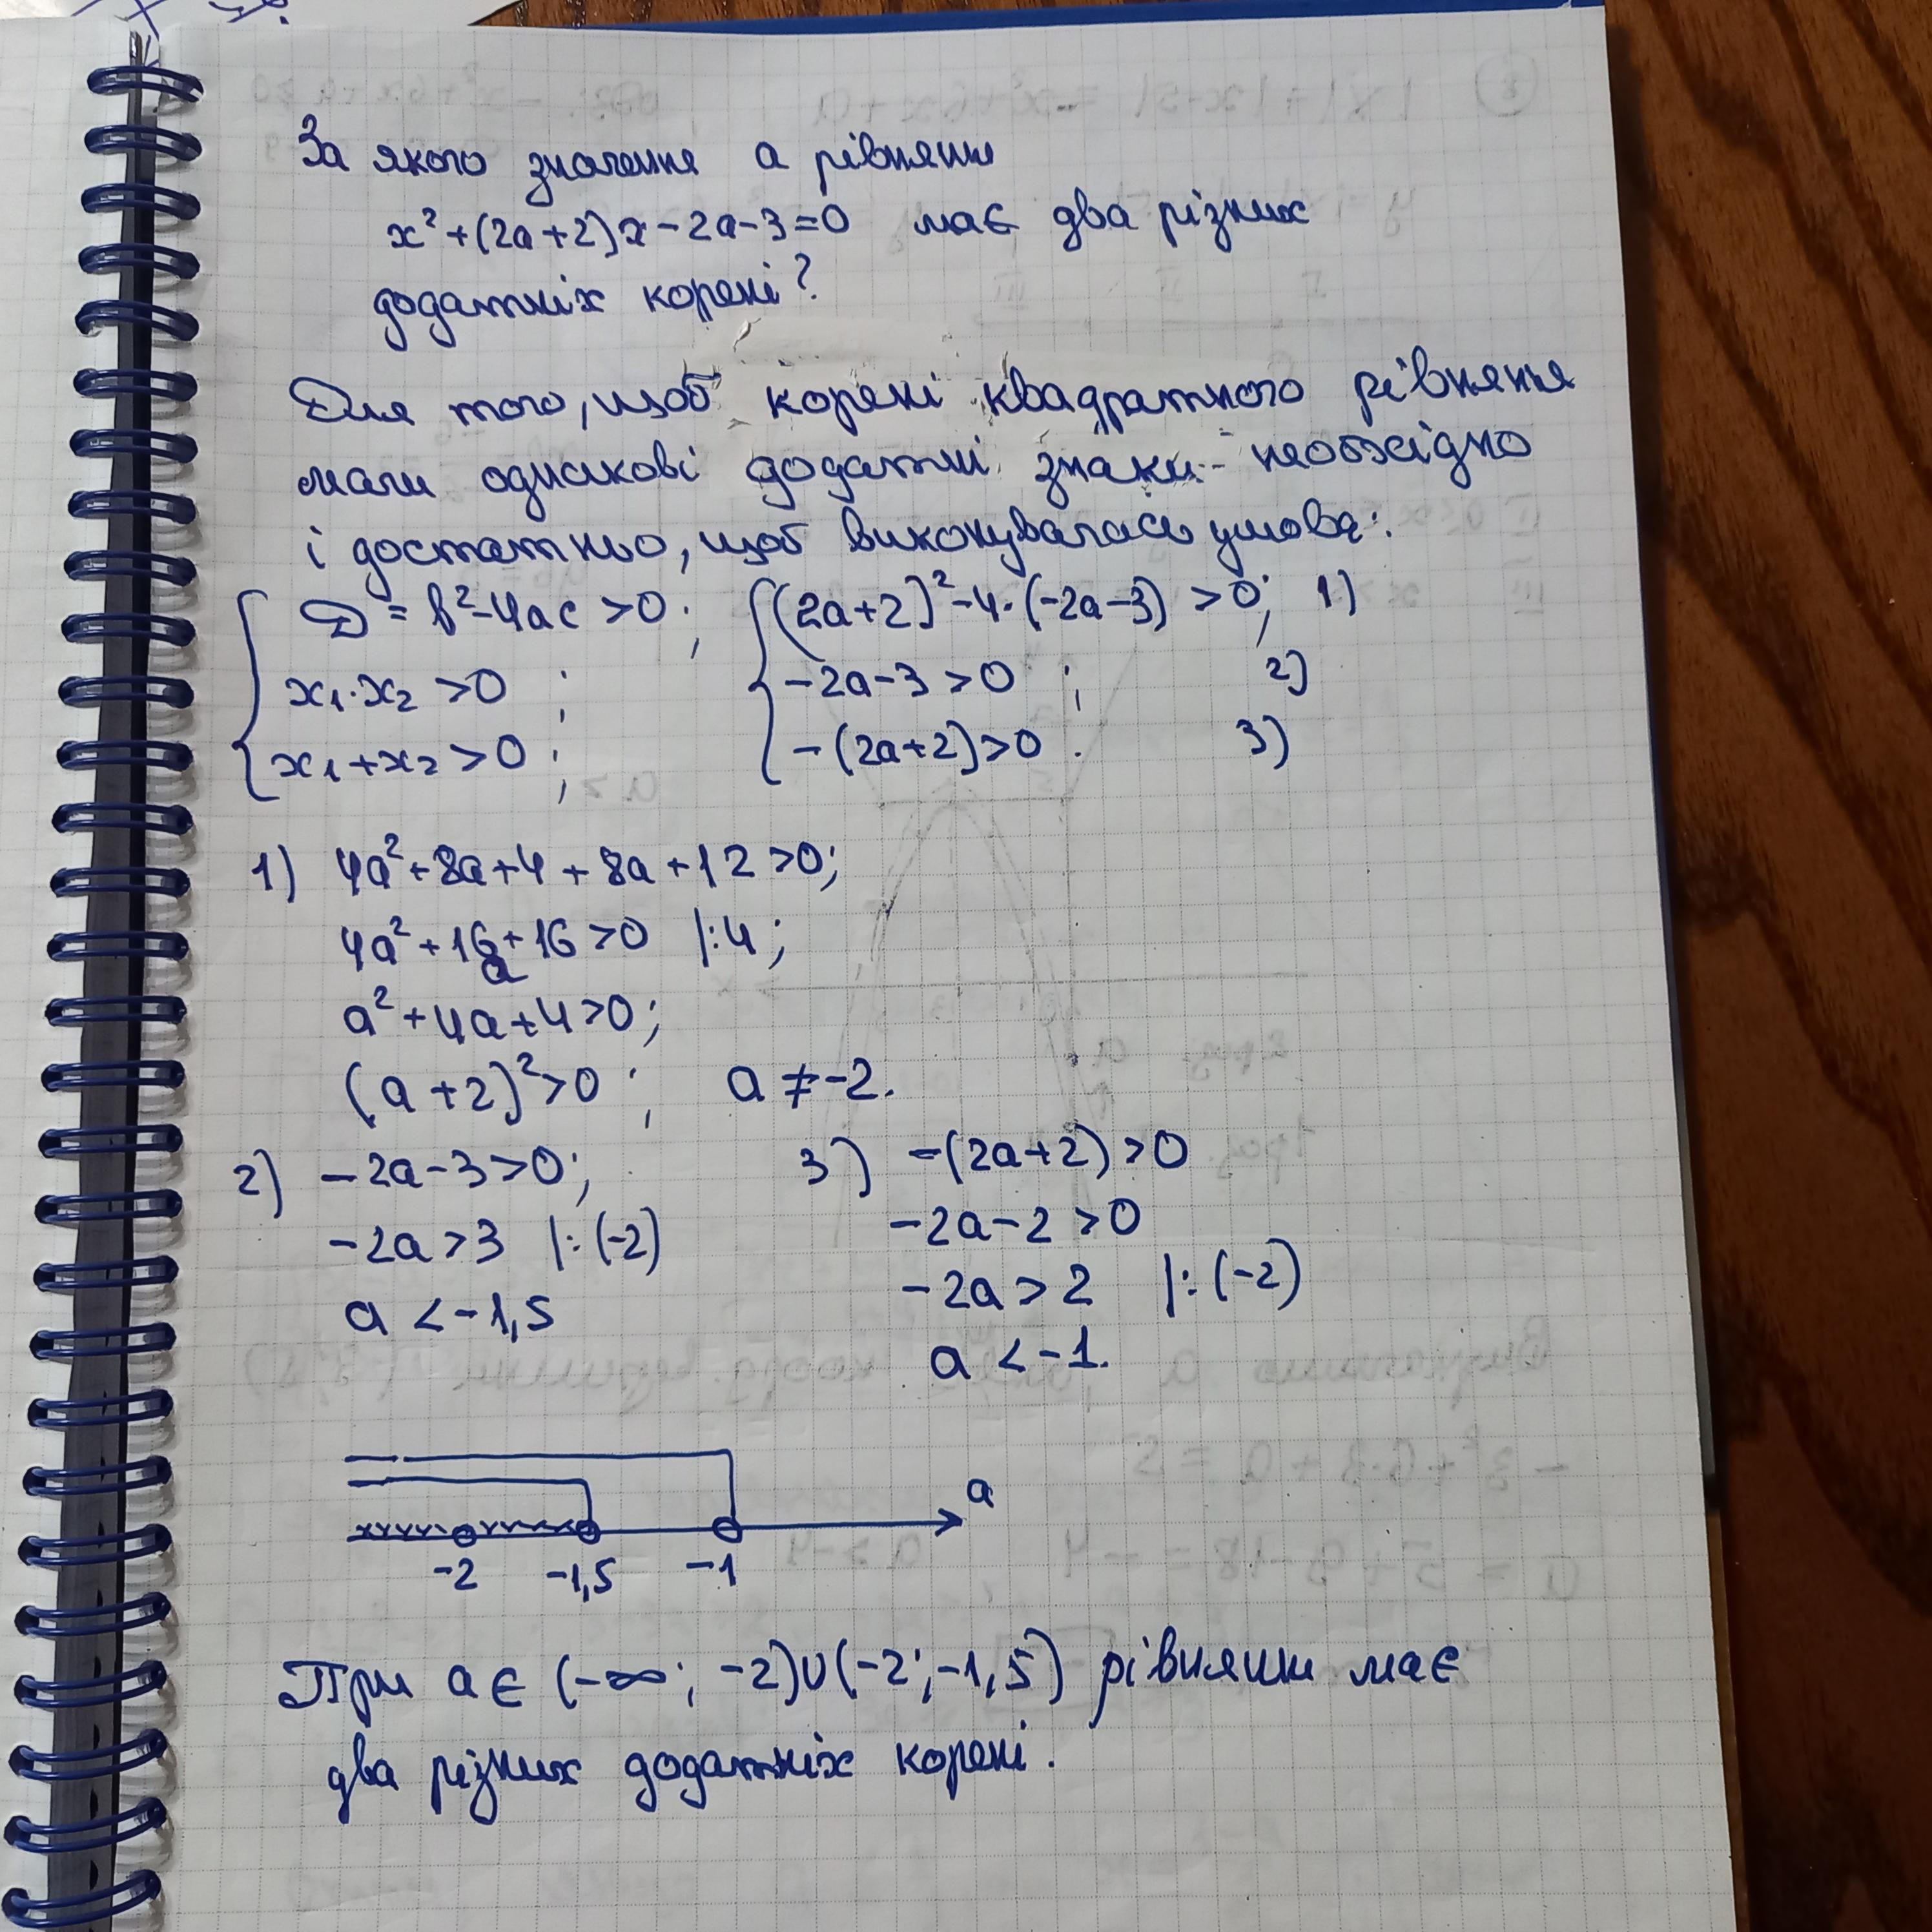 За якого значення a рівняння
x²+(2a+2)x-2a-3=0 має два різних
додатніх корені?
Для того, щоб корені квадратного рівняння
мали однакові додатні знаки необхідно
і достатньо, щоб виконувалась умова:
{ D = b²-4ac >0 ; { (2a+2)²-4·(-2a-3) >0; 1)
x₁·x₂ >0 ; -2a-3>0 ; 2)
x₁+x₂ >0 ; -(2a+2)>0 . 3)
1) 4a²+8a+4+8a+12>0;
4a²+16a+16>0 |:4;
a²+4a+4>0;
(a+2)²>0 ; a ≠ -2.
2) -2a-3>0; 3) -(2a+2)>0
-2a>3 |:(-2) -2a-2>0
a <-1,5 -2a>2 |:(-2)
a <-1.
a
-2 -1,5 -1
При a∈ (-∞; -2)∪(-2;-1,5) рівняння має
два різних додатніх корені.